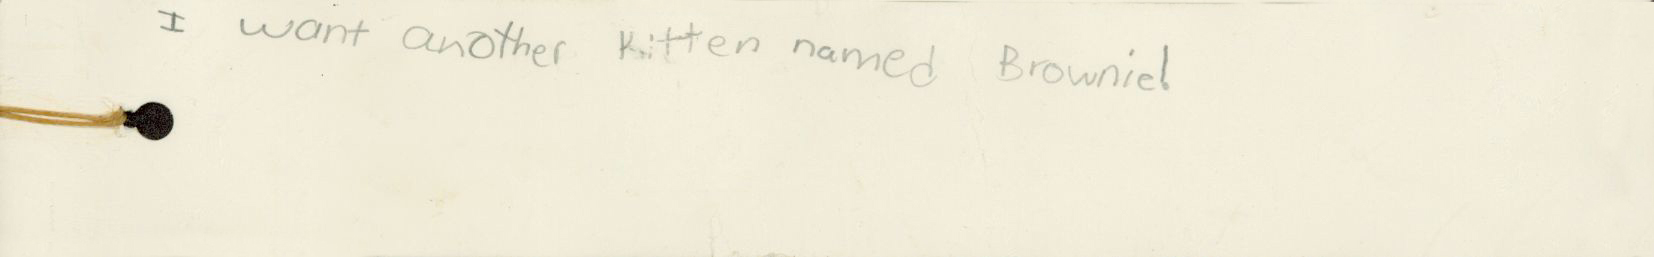 I want another Kitten named Brownie!